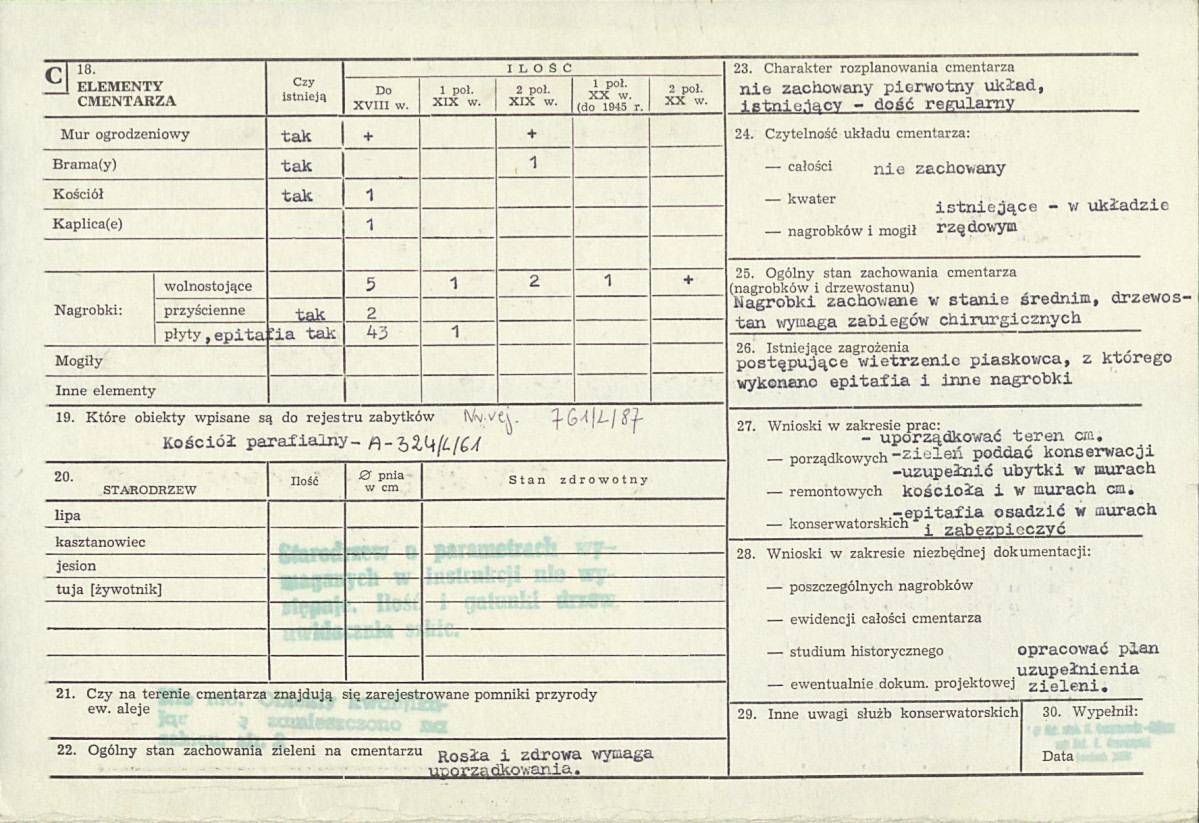 C
18.
ELEMENTY
CMENTARZA
Czy
istnieją
ILOŚĆ
Do
XVIII w.
1 poł.
XIX w.
2 poł.
XIX w.
1 poł.
XX w.
(do 1945 r.
2 poł.
XX w.
Mur ogrodzeniowy tak + +
Brama(y) tak 1
Kościół tak 1
Kaplica(e) 1
Nagrobki:
wolnostojące 5 1 2 1 +
przyścienne tak 2
płyty, epitafia tak 43 1
Mogiły
Inne elementy
19. Które obiekty wpisane są do rejestru zabytków Nr. rej. 761/L/87
Kościół parafialny - A-324/L/61
20.
STARODRZEW
Ilość
Ø pnia
w cm
Stan zdrowotny
lipa
kasztanowiec
jesion
tuja [żywotnik]
Starodrzew o parametrach wy-
maganych w instrukcji nie wy-
stępuje. Ilość i gatunki drzew
uwidacznia szkic.
21. Czy na terenie cmentarza znajdują się zarejestrowane pomniki przyrody
ew. aleje
zamieszczono na
22. Ogólny stan zachowania zieleni na cmentarzu Rosła i zdrowa wymaga
uporządkowania.
23. Charakter rozplanowania cmentarza
nie zachowany pierwotny układ,
istniejący - dość regularny
24. Czytelność układu cmentarza:
— całości nie zachowany
— kwater
istniejące - w układzie
— nagrobków i mogił rzędowym
25. Ogólny stan zachowania cmentarza
(nagrobków i drzewostanu)
Nagrobki zachowane w stanie średnim, drzewos-
tan wymaga zabiegów chirurgicznych
26. Istniejące zagrożenia
postępujące wietrzenie piaskowca, z którego
wykonano epitafia i inne nagrobki
27. Wnioski w zakresie prac:
- uporządkować teren cm.
— porządkowych -zieleń poddać konserwacji
-uzupełnić ubytki w murach
— remontowych kościoła i w murach cm.
-epitafia osadzić w murach
— konserwatorskich i zabezpieczyć
28. Wnioski w zakresie niezbędnej dokumentacji:
— poszczególnych nagrobków
— ewidencji całości cmentarza
— studium historycznego opracować plan
uzupełnienia
— ewentualnie dokum. projektowej zieleni.
29. Inne uwagi służb konserwatorskich
30. Wypełnił:
Data